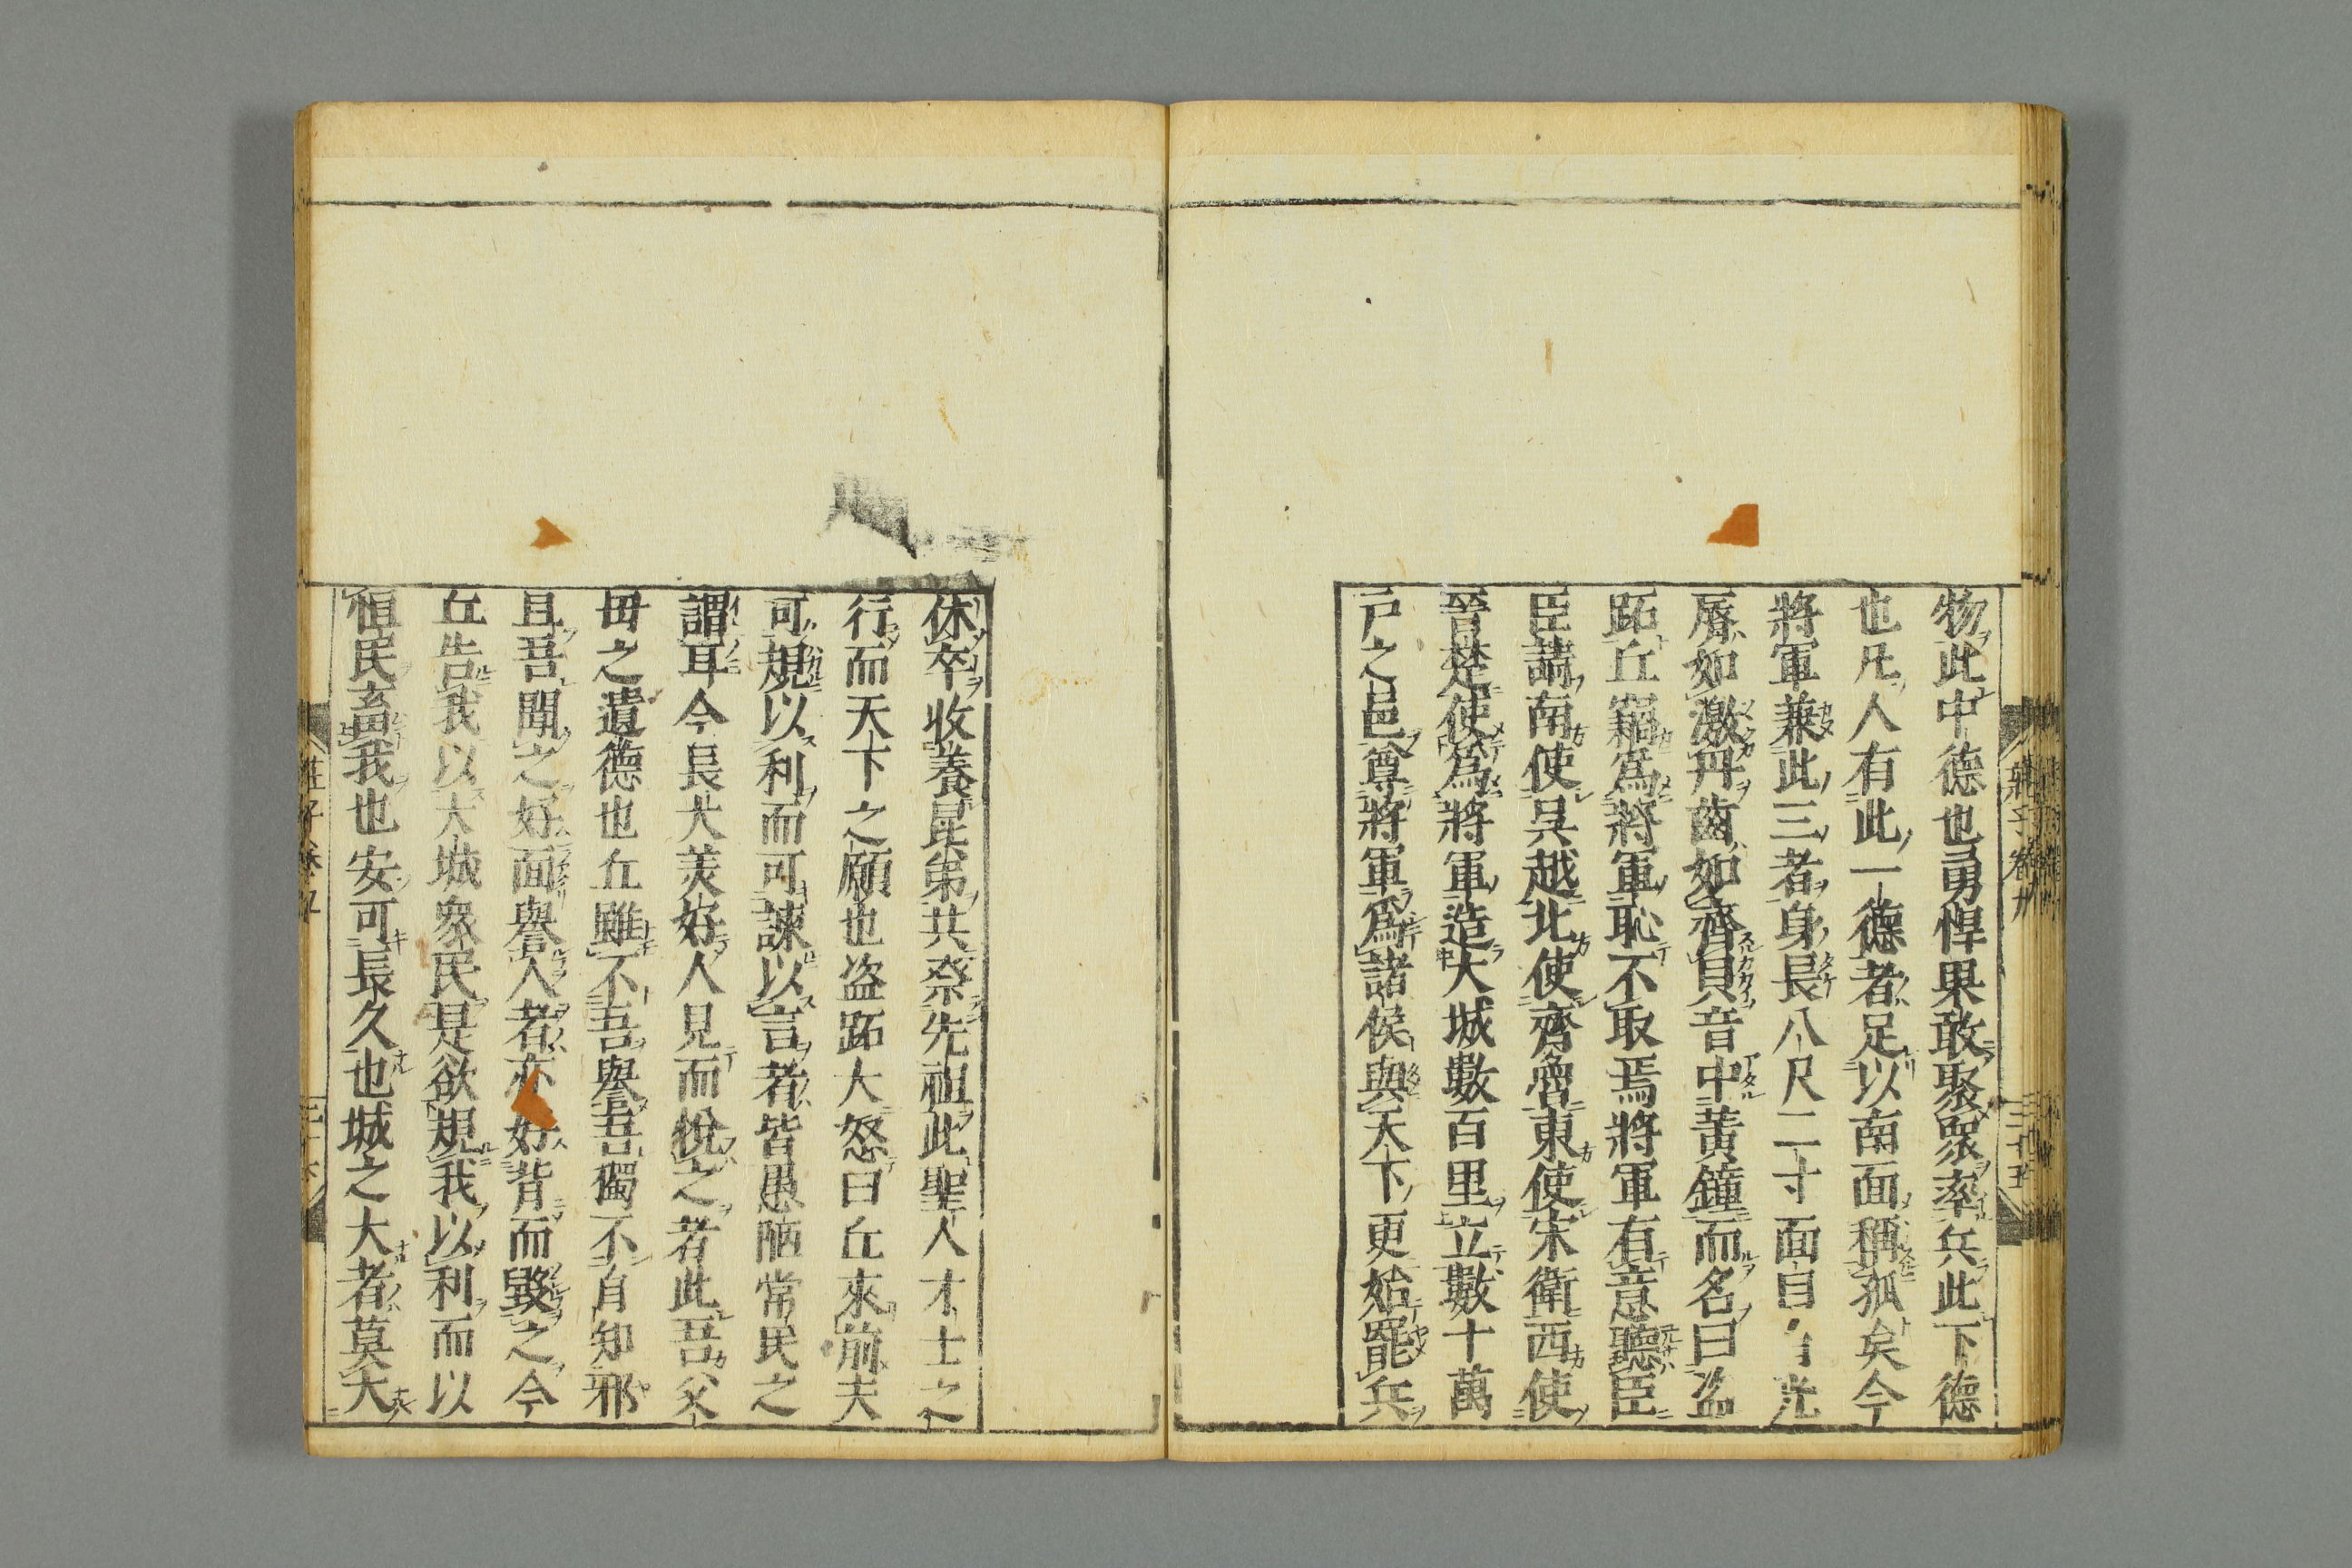 物此中德也勇悍果敢聚眾率兵此下德
也凡人有此一德者足以南面稱孤矣今
將軍兼此三者身長八尺二寸面目有光
脣如激丹齒如齊貝音中黃鐘而名曰盜
跖丘竊爲將軍恥不取焉將軍有意聽臣
臣請南使吳越北使齊魯東使宋衛西使
晉楚使爲將軍造大城數百里立數十萬
戶之邑尊將軍爲諸侯與天下更始罷兵
休卒收養昆弟共祭先祖此聖人才士之
行而天下之願也盗跖大怒曰丘來前夫
可規以利而可諫以言者皆愚陋常民之
謂耳今長大美好人見而悅之者此吾父
母之遺德也丘雖不吾譽吾獨不自知邪
且吾聞之好面譽人者亦好背而毀之今
丘告我以大城衆民是欲規我以利而以
恒民畜我也安可長久也城之大者莫大